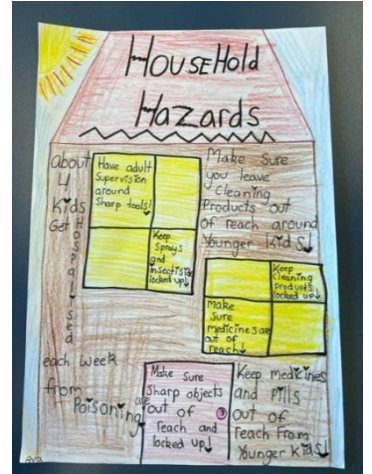 HouseHold
Hazards
about
4
Kids
Get
HOSPqalised
each week
from
Poisoning
Have adult
Supervision
around
Sharp tools!
Keep
Sprays
and
insectisides
locked up!
Make Sure
you leave
Cleaning
Products out
of reach around
Younger Kids!
Keep
Cleaning
products
locked up!
Make
Sure
medicines are
out of
reach!
Make Sure
Sharp objects
are out of
reach and
locked up!
Keep medicines
and pills
out of
reach From
Younger Kids!
Ava